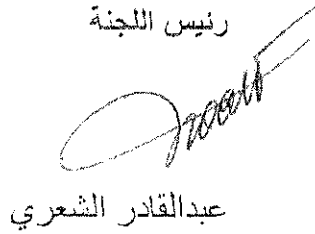 رئيس اللجنة
عبدالقادر الشعري